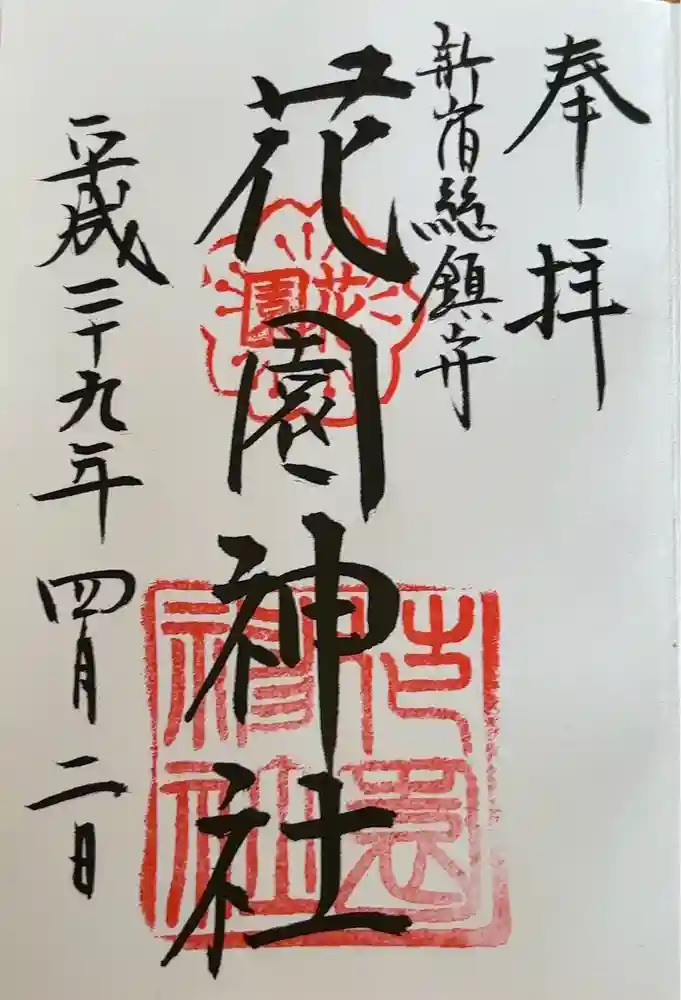 奉拝
新宿總鎮守
花園神社
花園
花園神社
平成二十九年四月二日